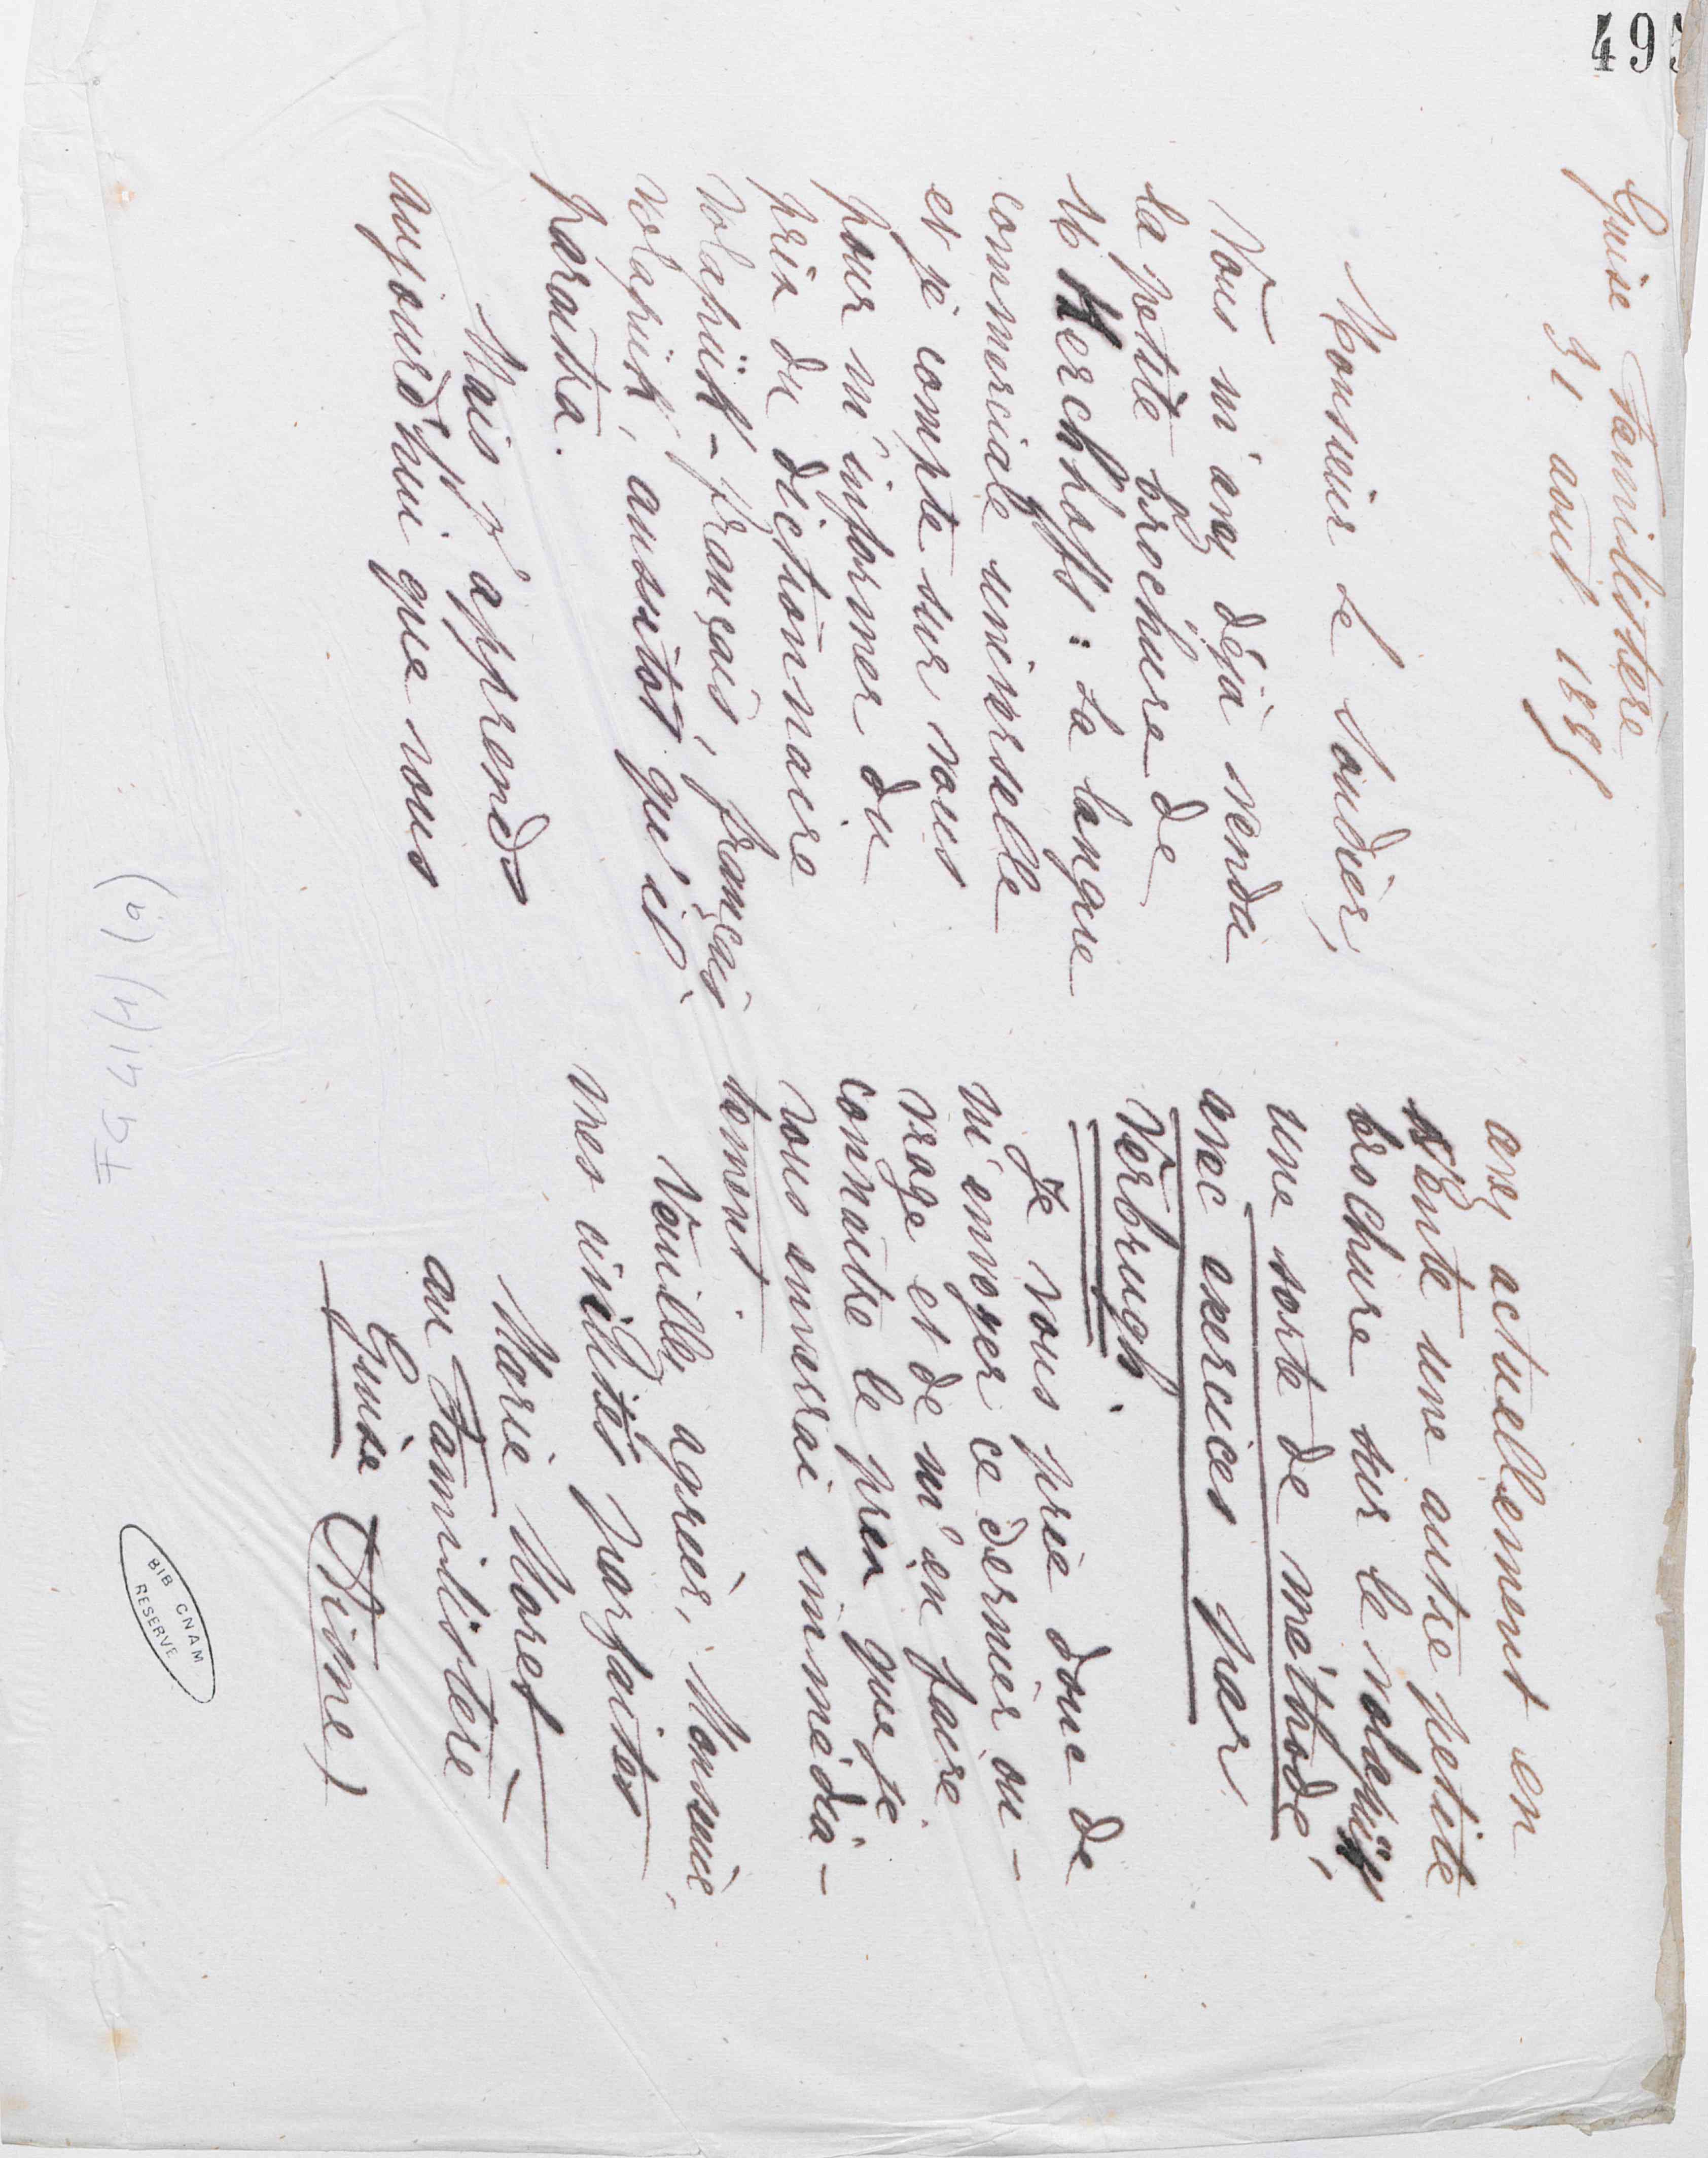 495
Guise Familistère
31 août 1885
Monsieur Le Soudier,
Vous m'avez déjà vendu
la petite brochure de
M Kerckhoffs : La langue
commerciale universelle
et je compte sur vous
pour m'informer du
prix du dictionnaire
volapük-français, français
volapük, aussitôt qu'il
paraîtra.
Mais j'apprends
aujourd'hui que vous
avez actuellement en
vente une autre petite
brochure sur le volapük,
une sorte de méthode,
avec exercices par
Verbrugh.
Je vous prie donc de
m'envoyer ce dernier ou-
vrage et de m'en faire
connaître le prix que je
vous enverrai immédia-
tement.
Veuillez agréer, Monsieur,
mes civilités parfaites
Marie Moret
au Familistère
Guise (Aisne)
FG 41(4) (9)
BIB CNAM
RESERVE